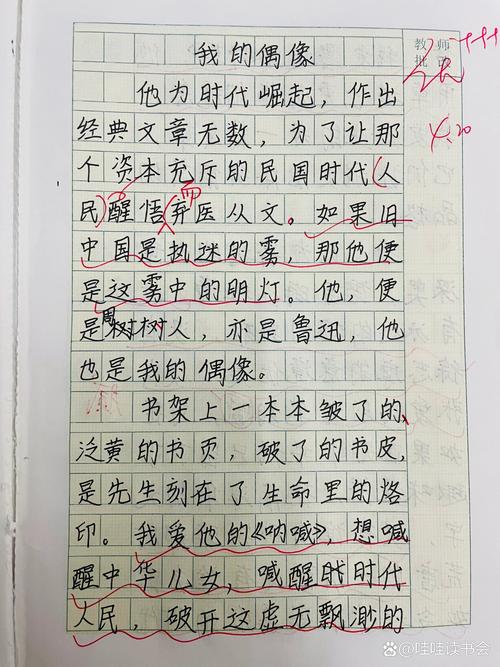 我的偶像
教师
批改
优+++
4.20
他为时代崛起，作出
经典文章无数，为了让那
个资本充斥的民国时代(人
民)醒悟而弃医从文。如果旧
中国是执迷的雾，那他便
是这雾中的明灯。他，便
是周树树人，亦是鲁迅，他
也是我的偶像。
书架上一本本皱了的、
泛黄的书页，破了的书皮，
是先生刻在了生命里的烙
印。我爱他的《呐喊》，想喊
醒中华儿女，喊醒时代
人民，破开这虚无飘渺的
@哇哇读书会